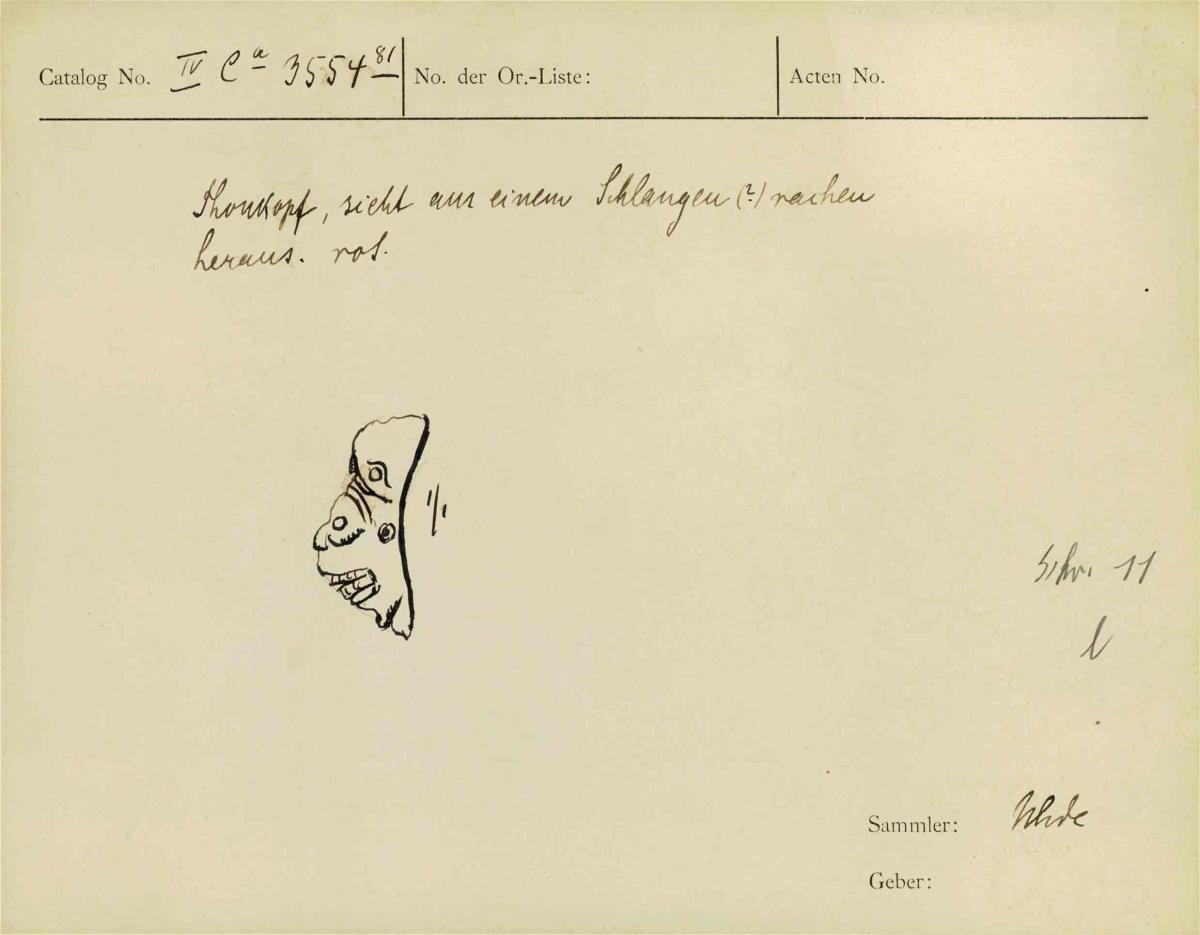 Catalog No. IV Ca 3554 81
No. der Or.-Liste:
Acten No.
Thonkopf, sieht aus einem Schlangen (?) rachen
heraus. rot.
1/1
Schr. 11
l
Sammler: Uhde
Geber: